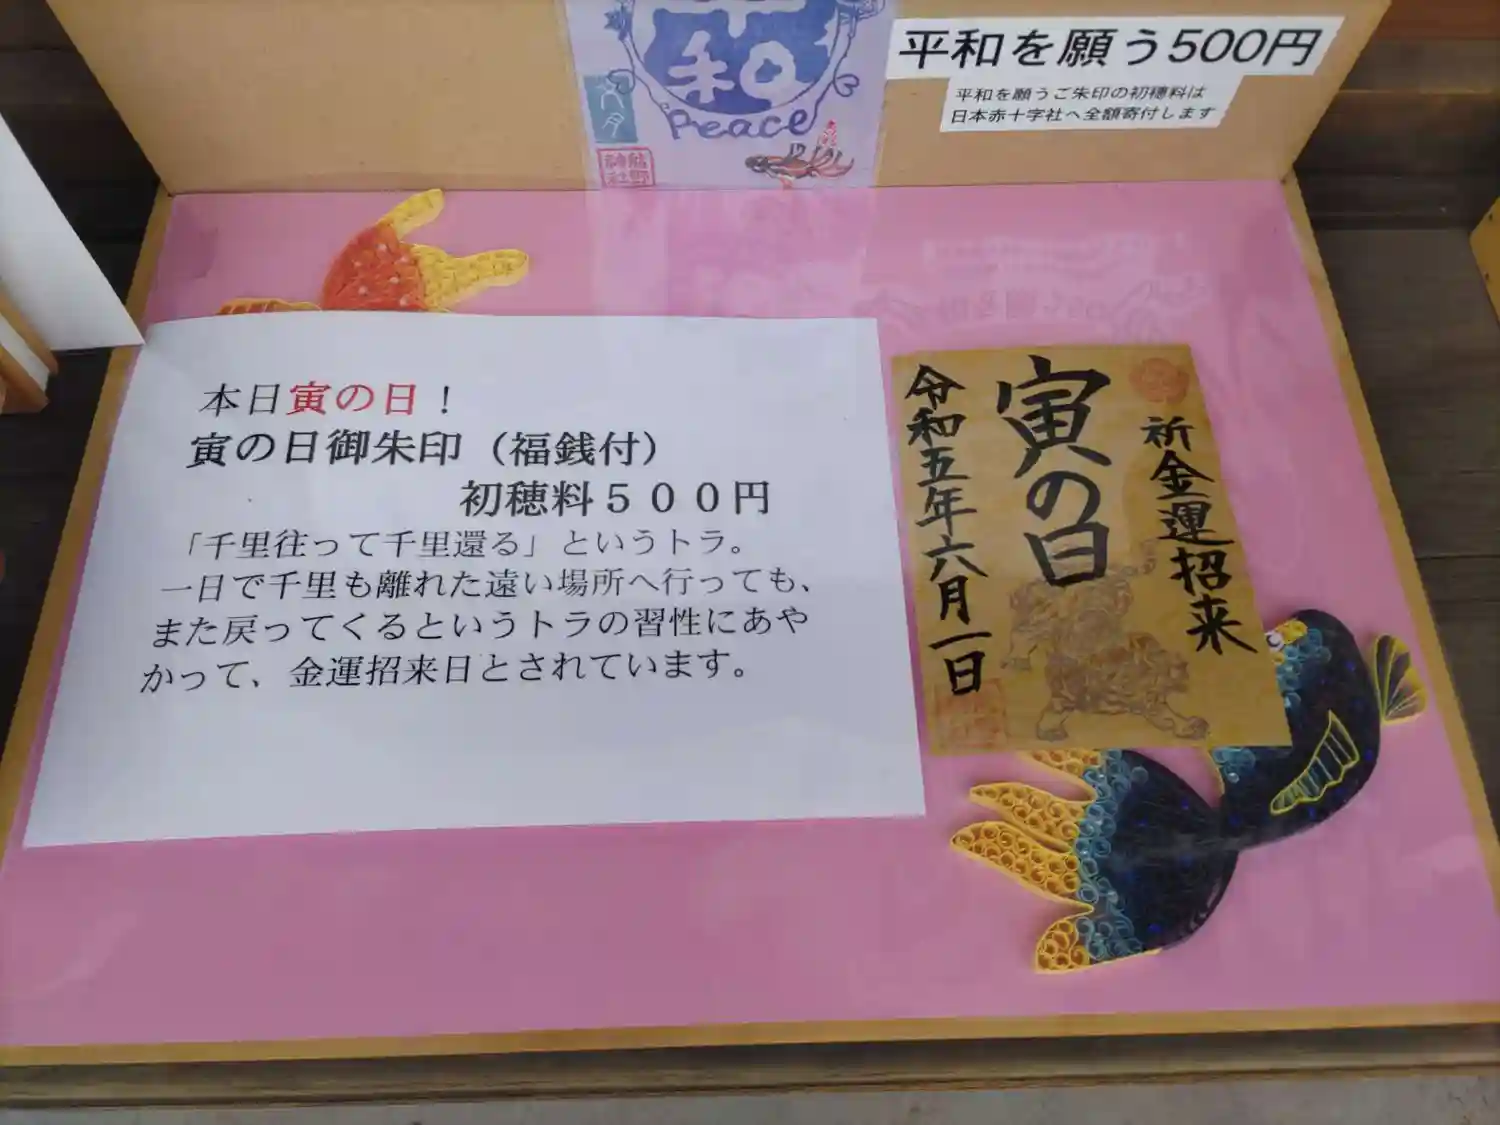 和
Peace
熊野
神社
平和を願う500円
平和を願うご朱印の初穂料は
日本赤十字社へ全額寄付します
本日寅の日！
寅の日御朱印（福銭付）
初穂料５００円
「千里往って千里還る」というトラ。
一日で千里も離れた遠い場所へ行っても、
また戻ってくるというトラの習性にあや
かって、金運招来日とされています。
祈金運招来
寅の日
令和五年六月一日